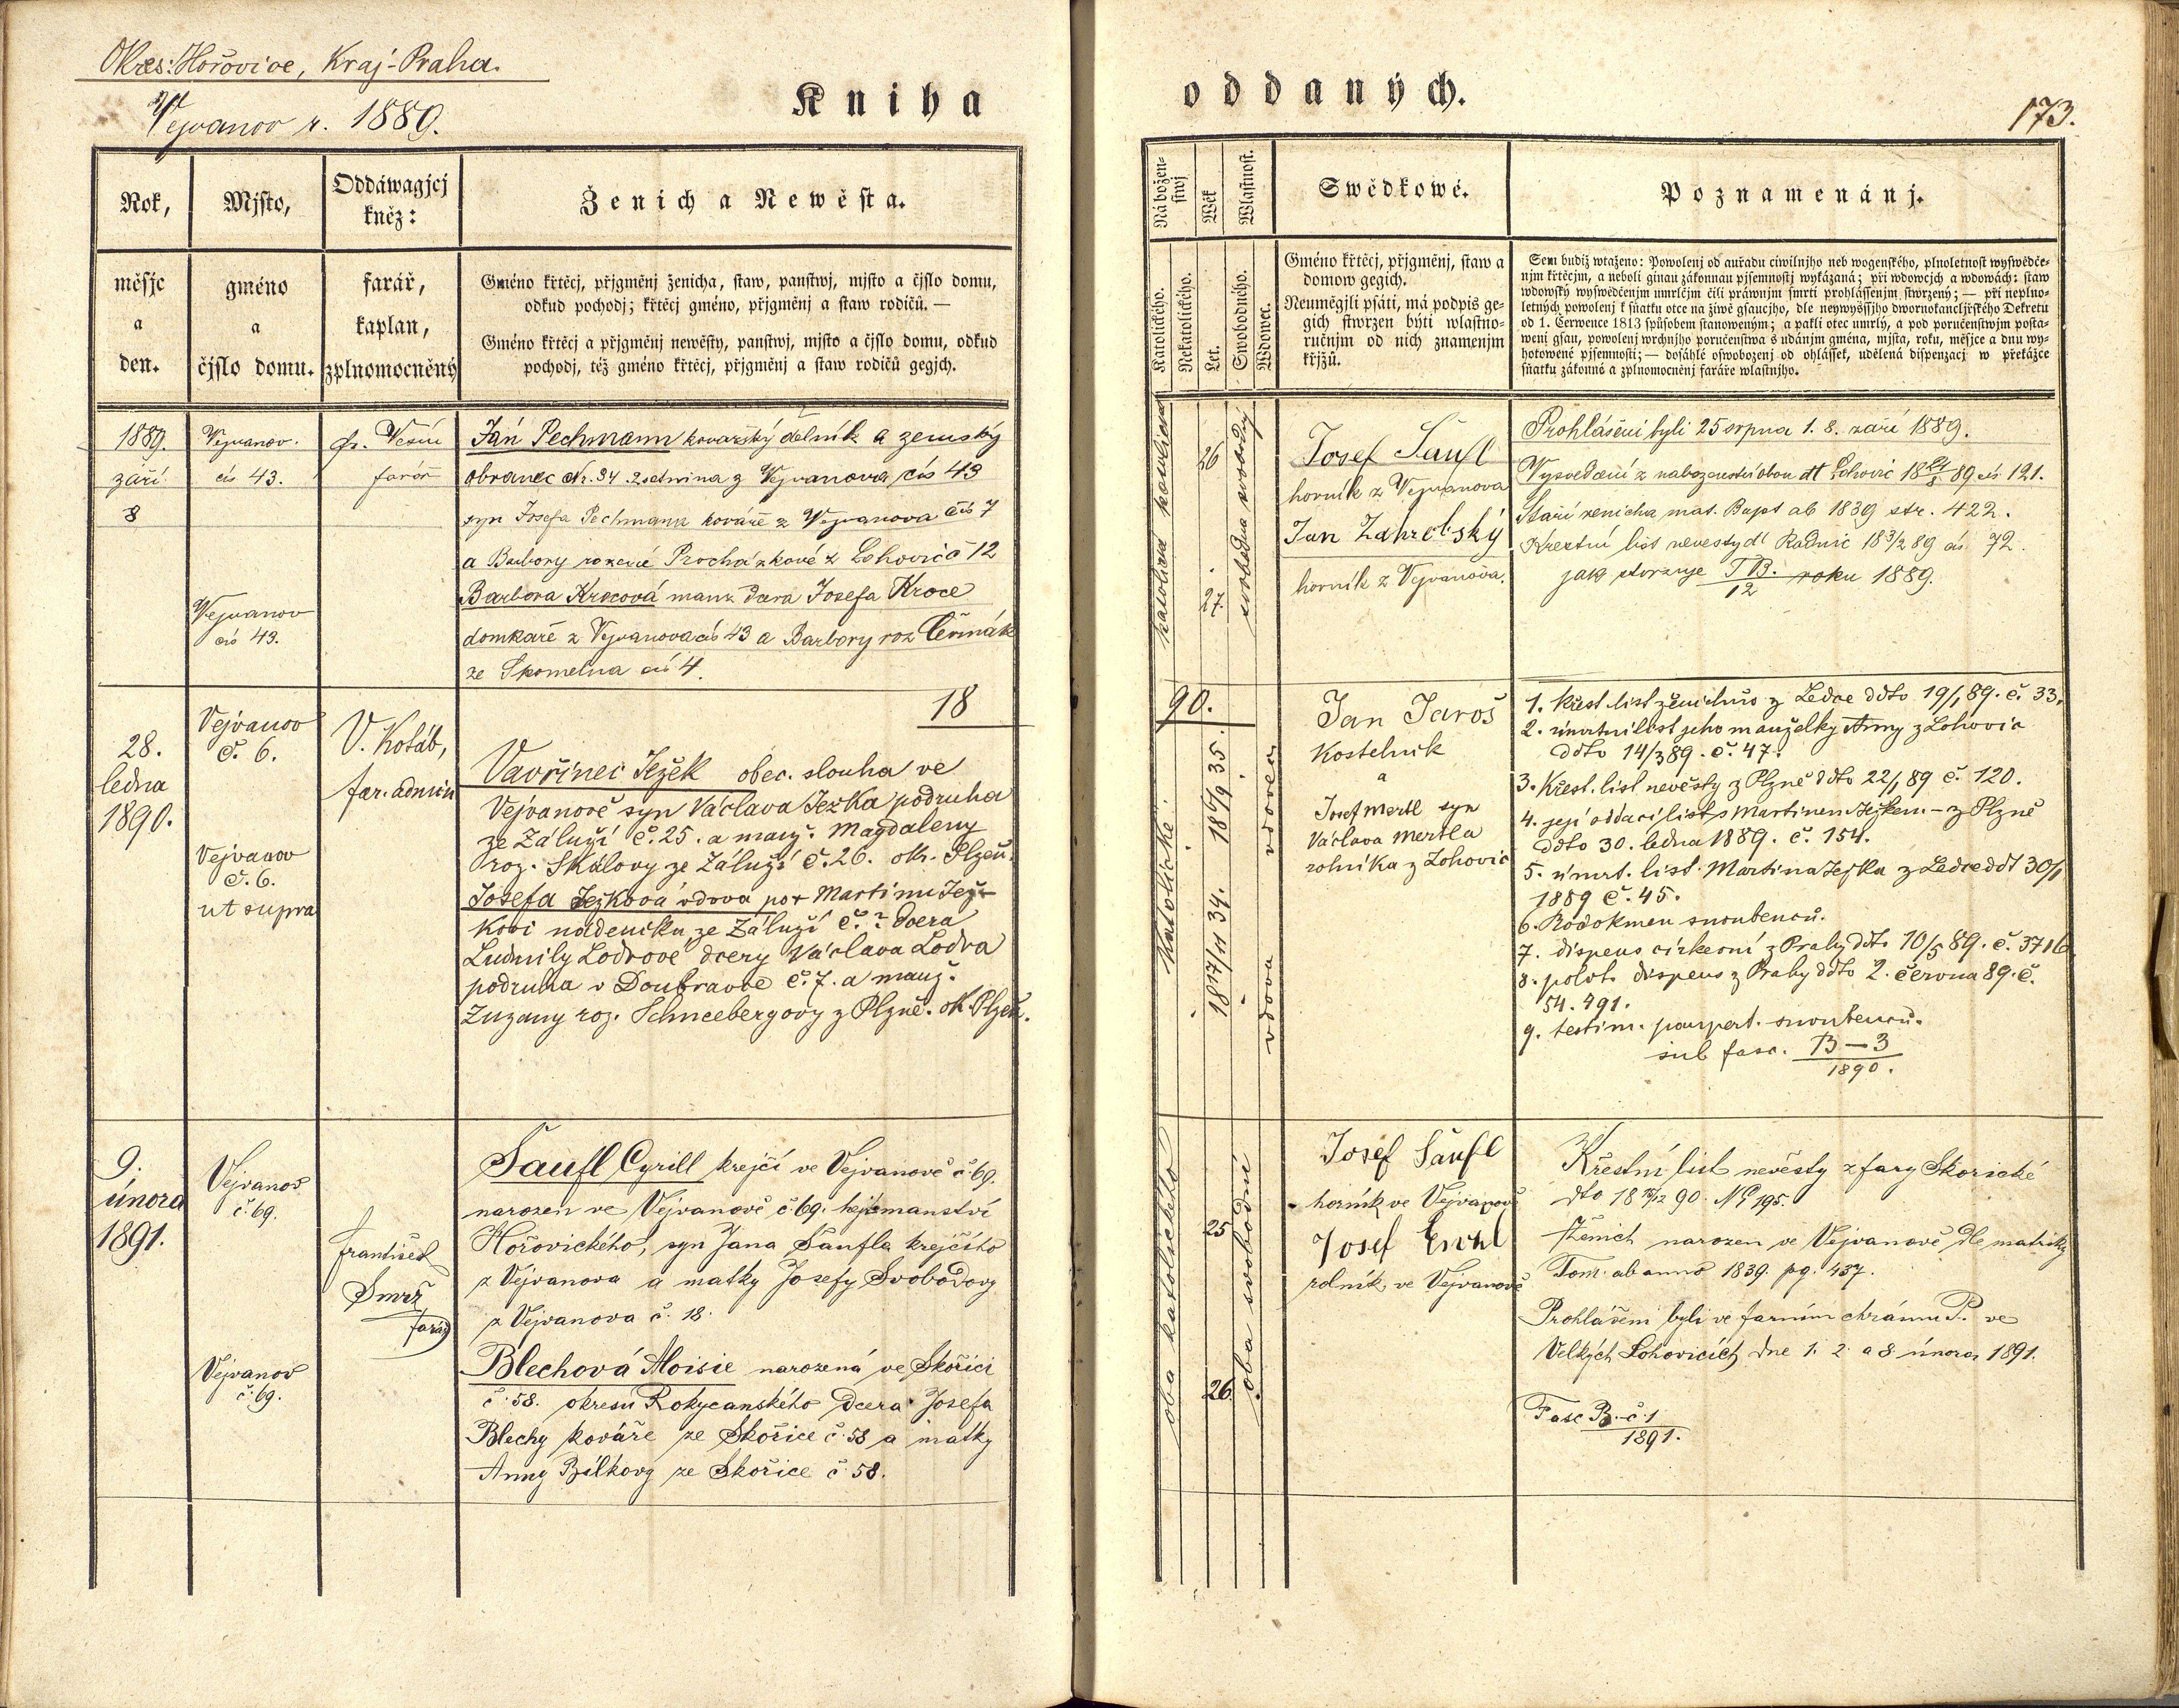 Okres: Hořovice, Kraj-Praha.
Vejvanov r. 1889.
Kniha
oddaných.
173.
Rok,
Mjsto,
Oddáwagjcj
kněz:
Ženich a Newěsta.
měsjc
a
den.
gméno
a
čjslo domu.
farář,
kaplan,
zplnomocněný
Gméno křtěcj, přjgměnj ženicha, staw, panstwj, mjsto a čjslo domu,
odkud pochodj; křtěcj gméno, přjgměnj a staw rodičů. —
Gméno křtěcj a přjgměnj newěsty, panstwj, mjsto a čjslo domu, odkud
pochodj, též gméno křtěcj, přjgměnj a staw rodičů gegjch.
Nábožen-
stwj
Wěk
Wlastnost.
Swědkowé.
Poznamenánj.
Katolického.
Nekatolického.
Let.
Swobodného.
Wdowec.
Gméno křtěcj, přjgměnj, staw a
domow gegich.
Neuměgjli psáti, má podpis ge-
gich stwrzen býti wlastno-
ručnjm od nich znamenjm
křjžů.
Sem budiž wtaženo: Powolenj od auřadu ciwilnjho neb wogenského, plnoletnost wyswědče-
njm křtěcjm, a neboli ginau zákonnau pjsemnostj wykázaná; při wdowcjch a wdowách: staw
wdowský wyswědčenjm umrlčjm čili práwnjm smrti prohlássenjm stwrzený; — při neplno-
letných powolenj k sňatku otce na žiwě gsaucjho, dle neywyššjho dwornokancljřského Dekretu
od 1. Července 1813 spůsobem stanoweným; a pakli otec umrlý, a pod poručenstwjm posta-
weni gsau, powolenj wrchnjho poručenstwa s udánjm gména, mjsta, roku, měsjce a dnu wy-
hotowené pjsemnosti; — dosáhlé oswobozenj od ohlášek, udělená dispenzacj w překážce
sňatku zákonné a zplnomocněnj faráře wlastnjho.
1889.
září
8
Vejvanov.
čís 43.
Vejvanov
čís 43.
Fr. Vesni
farář
Jan Pechmann kovářský dělník a zemský
obranec Nr. 34 2 setnina z Vejvanova čís 43
syn Josefa Pechmann kováře z Vejvanova čís 7
a Barbory rozené Procházkové z Lohovic č 12
Barbora Krocová manž dcera Josefa Kroce
domkaře z Vejvanova čís 43 a Barbory roz Čermák
ze Skomelna čís 4.
katolické katolické
26
27.
svobodna svobodný
Josef Šaufl
horník z Vejvanova
Jan Zahrobský
horník z Vejvanova.
Prohlášeni byli 25 srpna 1. 8. září 1889.
Vysvedčení z nabozenství obou dt Lohovic 18 24/8 89 čís 121.
Staří ženicha mat. Bapt ab 1839 str. 422.
Křestní list nevesty dt Radnic 18 3/2 89 čís 72.
jak stvrzuje TB./12 roku 1889.
18
90.
28.
ledna
1890.
Vejvanov
č. 6.
Vejvanov
č. 6.
ut supra
V. Kotáb,
far. admin
Vavřinec Ježek obec. slouha ve
Vejvanově syn Václava Ježka podruha
ze Záluží č. 25. a manž. Magdaleny
roz. Skálovy ze Záluží č. 26. okr. Plzeň.
Josefa Ježková vdova po + Martinu Jež-
kovi nádeníku ze Záluží č. ? dcera
Ludmily Lodrové dcery Václava Lodra
podruha v Doubravce č. 7. a manž.
Zuzany roz. Schneebergovy z Plzně. ok. Plzeň.
Katolické
18 6/9 35.
18 17/11 34.
vdovec
vdova
Jan Jaroš
Kostelník
a
Josef Mertl syn
Václava Mertla
rolníka z Lohovic
1. Křest. list ženichův z Ledce ddto 19/1 89. č. 33.
2. úmrtní list jeho manželky Anny z Lohovic
ddto 14/3 89. č. 47.
3. Křest. list nevěsty z Plzně ddto 22/1 89 č. 120.
4. její oddací list s Martinem Ježkem – z Plzně
ddto 30. ledna 1889. č. 154.
5. úmrt. list. Martina Ježka z Ledce ddt 30/1
1889 č. 45.
6. Rodokmen snoubenců.
7. dispens církevní z Prahy ddto 10/5 89. č. 3716
8. polit. dispens z Prahy ddto 2. června 89. č.
54.491.
9. testim. paupert. snoubenců.
sub fasc. B—3
1890.
9.
února
1891.
Vejvanov
č. 69.
Vejvanov
č. 69.
František
Smrž
farář
Šaufl Cyrill krejčí ve Vejvanově č. 69.
narozen ve Vejvanově č. 69. hejtmanství
Hořovického, syn Jana Šaufla krejčího
z Vejvanova a matky Josefy Svobodovy
z Vejvanova č. 18.
Blechová Aloisie narozená ve Skořici
č. 58. okresu Rokycanského dcera Josefa
Blechy kováře ze Skořice č. 58 a matky
Anny Bílkovy ze Skořice č. 58.
oba katolického
25
26.
oba svobodní
Josef Šaufl
horník ve Vejvanově
Josef
rolník ve Vejvanově
Křestní list nevěsty z fary Skořické
dto 18 19/12 90. No 195.
Ženich narozen ve Vejvanově dle matriky
Tom. ab anno 1839. pg. 437.
Prohlášeni byli ve farním chrámu P. ve
Velkých Lohovicích dne 1. 2. a 8 února 1891.
Fasc B. č. 1
1891.